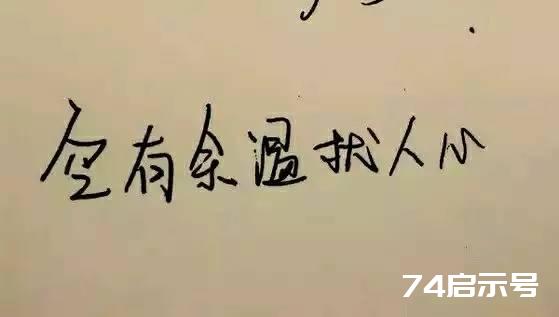 空有余温扰人心
74启示号